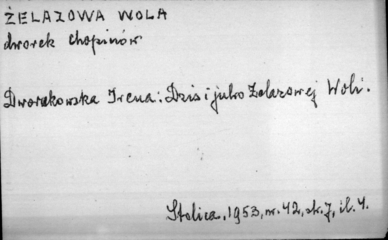 ŻELAZOWA WOLA
dworek Chopinów
Dworakowska Irena: Dziś i jutro Żelazowej Woli.
Stolica, 1953, nr. 42, str. 7, il. 4.